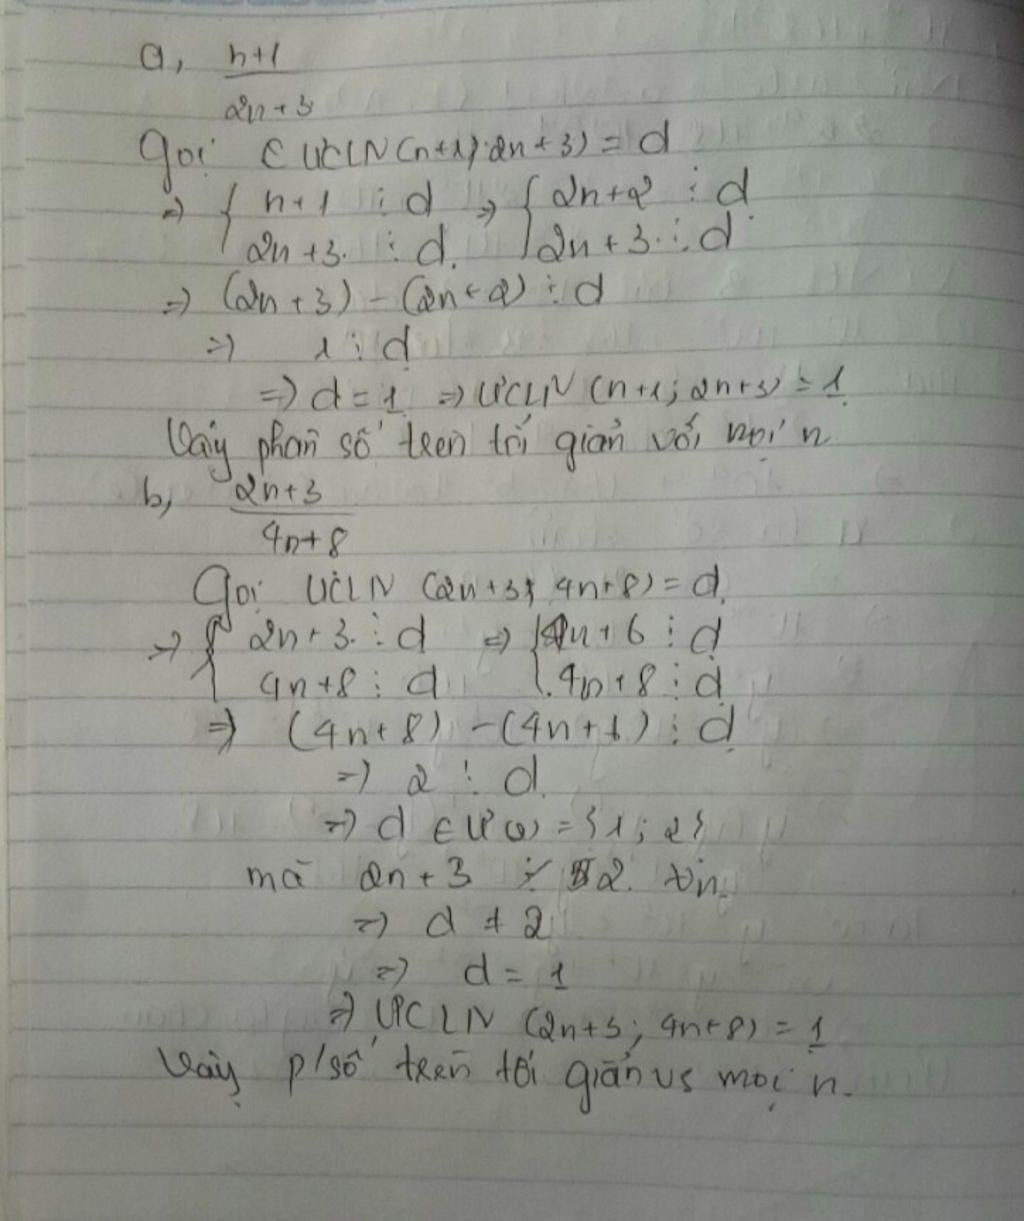 a, n+1
2n+3
Gọi ƯCLN (n+1; 2n+3) = d
=> { n+1 ⋮ d => { 2n+2 ⋮ d
2n+3 ⋮ d. 2n+3 ⋮ d
=> (2n+3) - (2n+2) ⋮ d
=> 1 ⋮ d
=> d = 1 => ƯCLN (n+1; 2n+3) = 1
Vậy phân số trên tối giản với mọi n
b, 2n+3
4n+8
Gọi ƯCLN (2n+3; 4n+8) = d.
=> { 2n+3 ⋮ d => { 4n+6 ⋮ d
4n+8 ⋮ d 4n+8 ⋮ d
=> (4n+8) - (4n+6) ⋮ d
=> 2 ⋮ d.
=> d ∈ Ư(2) = {1; 2}
mà 2n+3 ⋮̸ 2. ∀n.
=> d ≠ 2
=> d = 1
=> ƯCLN (2n+3; 4n+8) = 1
Vậy p/số trên tối giản vs mọi n.